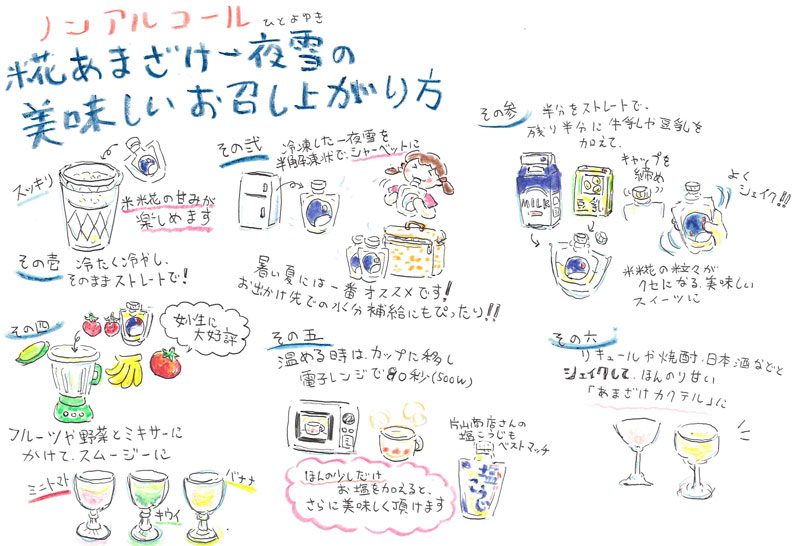 ノンアルコール
ひとよゆき
糀あまざけ一夜雪の
美味しいお召し上がり方
スッキリ
米糀の甘みが
楽しめます
その壱 冷たく冷やし、
そのままストレートで!
その弐 冷凍した一夜雪を
半解凍状で、シャーベットに
暑い夏には一番オススメです!
お出かけ先での水分補給にもぴったり!!
その参 半分をストレートで、
残り半分に牛乳や豆乳を
加えて、
MILK
豆乳
キャップを
締め
よく
シェイク!!
米糀の粒々が
クセになる美味しい
スイーツに
その四
女性に
大好評
フルーツや野菜とミキサーに
かけて、スムージーに
ミニトマト
キウイ
バナナ
その五
温める時は、カップに移し
電子レンジで80秒(500W)
ほんの少しだけ
お塩を加えると、
さらに美味しく頂けます
片山商店さんの
塩こうじも
ベストマッチ
塩こうじ
その六
リキュールや焼酎、日本酒などと
シェイクして、ほんのり甘い
「あまざけカクテル」に